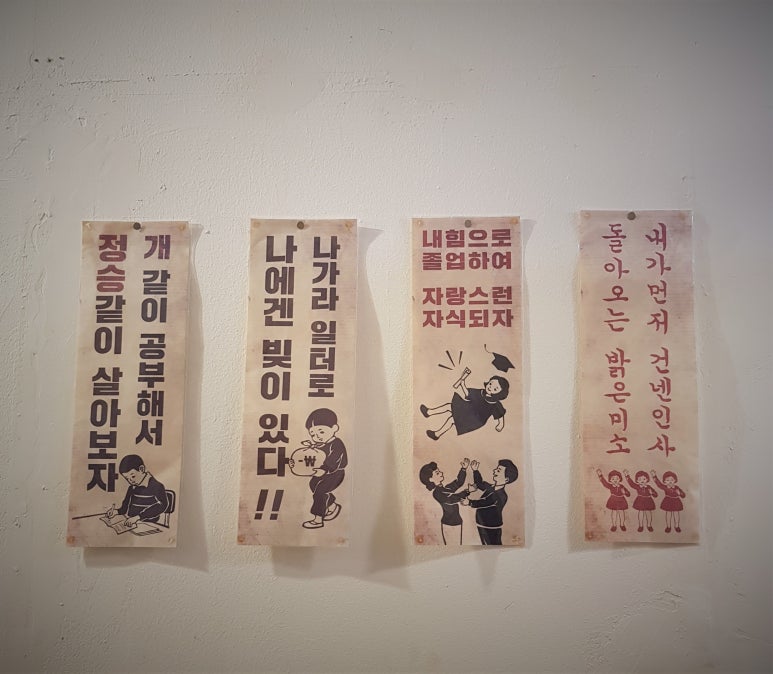 개 같이 공부해서
정승같이 살아보자
나가라 일터로
나에겐 빚이 있다 !!
₩
내힘으로
졸업하여
자랑스런
자식되자
내가먼저 건넨인사
돌아오는 밝은미소